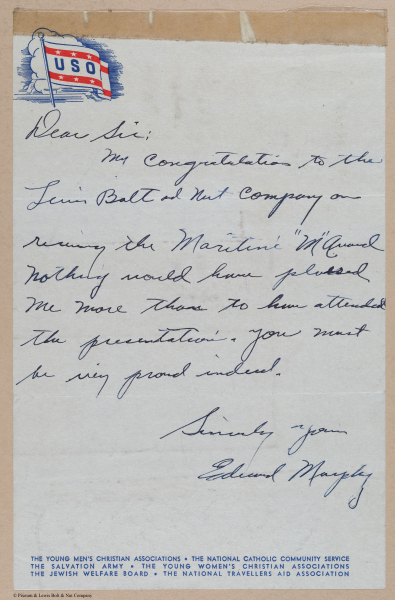 USO
Dear Sir:
My Congratulations to the
Lewis Bolt and Nut Company on
reciving the Maritime "M" Award
Nothing would have pleased
me more than to have attended
the presentation. You must
be very proud indeed.
Sincerely yours
Edward Murphy
THE YOUNG MEN'S CHRISTIAN ASSOCIATIONS • THE NATIONAL CATHOLIC COMMUNITY SERVICE
THE SALVATION ARMY • THE YOUNG WOMEN'S CHRISTIAN ASSOCIATIONS
THE JEWISH WELFARE BOARD • THE NATIONAL TRAVELLERS AID ASSOCIATION
© Pioneer & Lewis Bolt & Nut Company